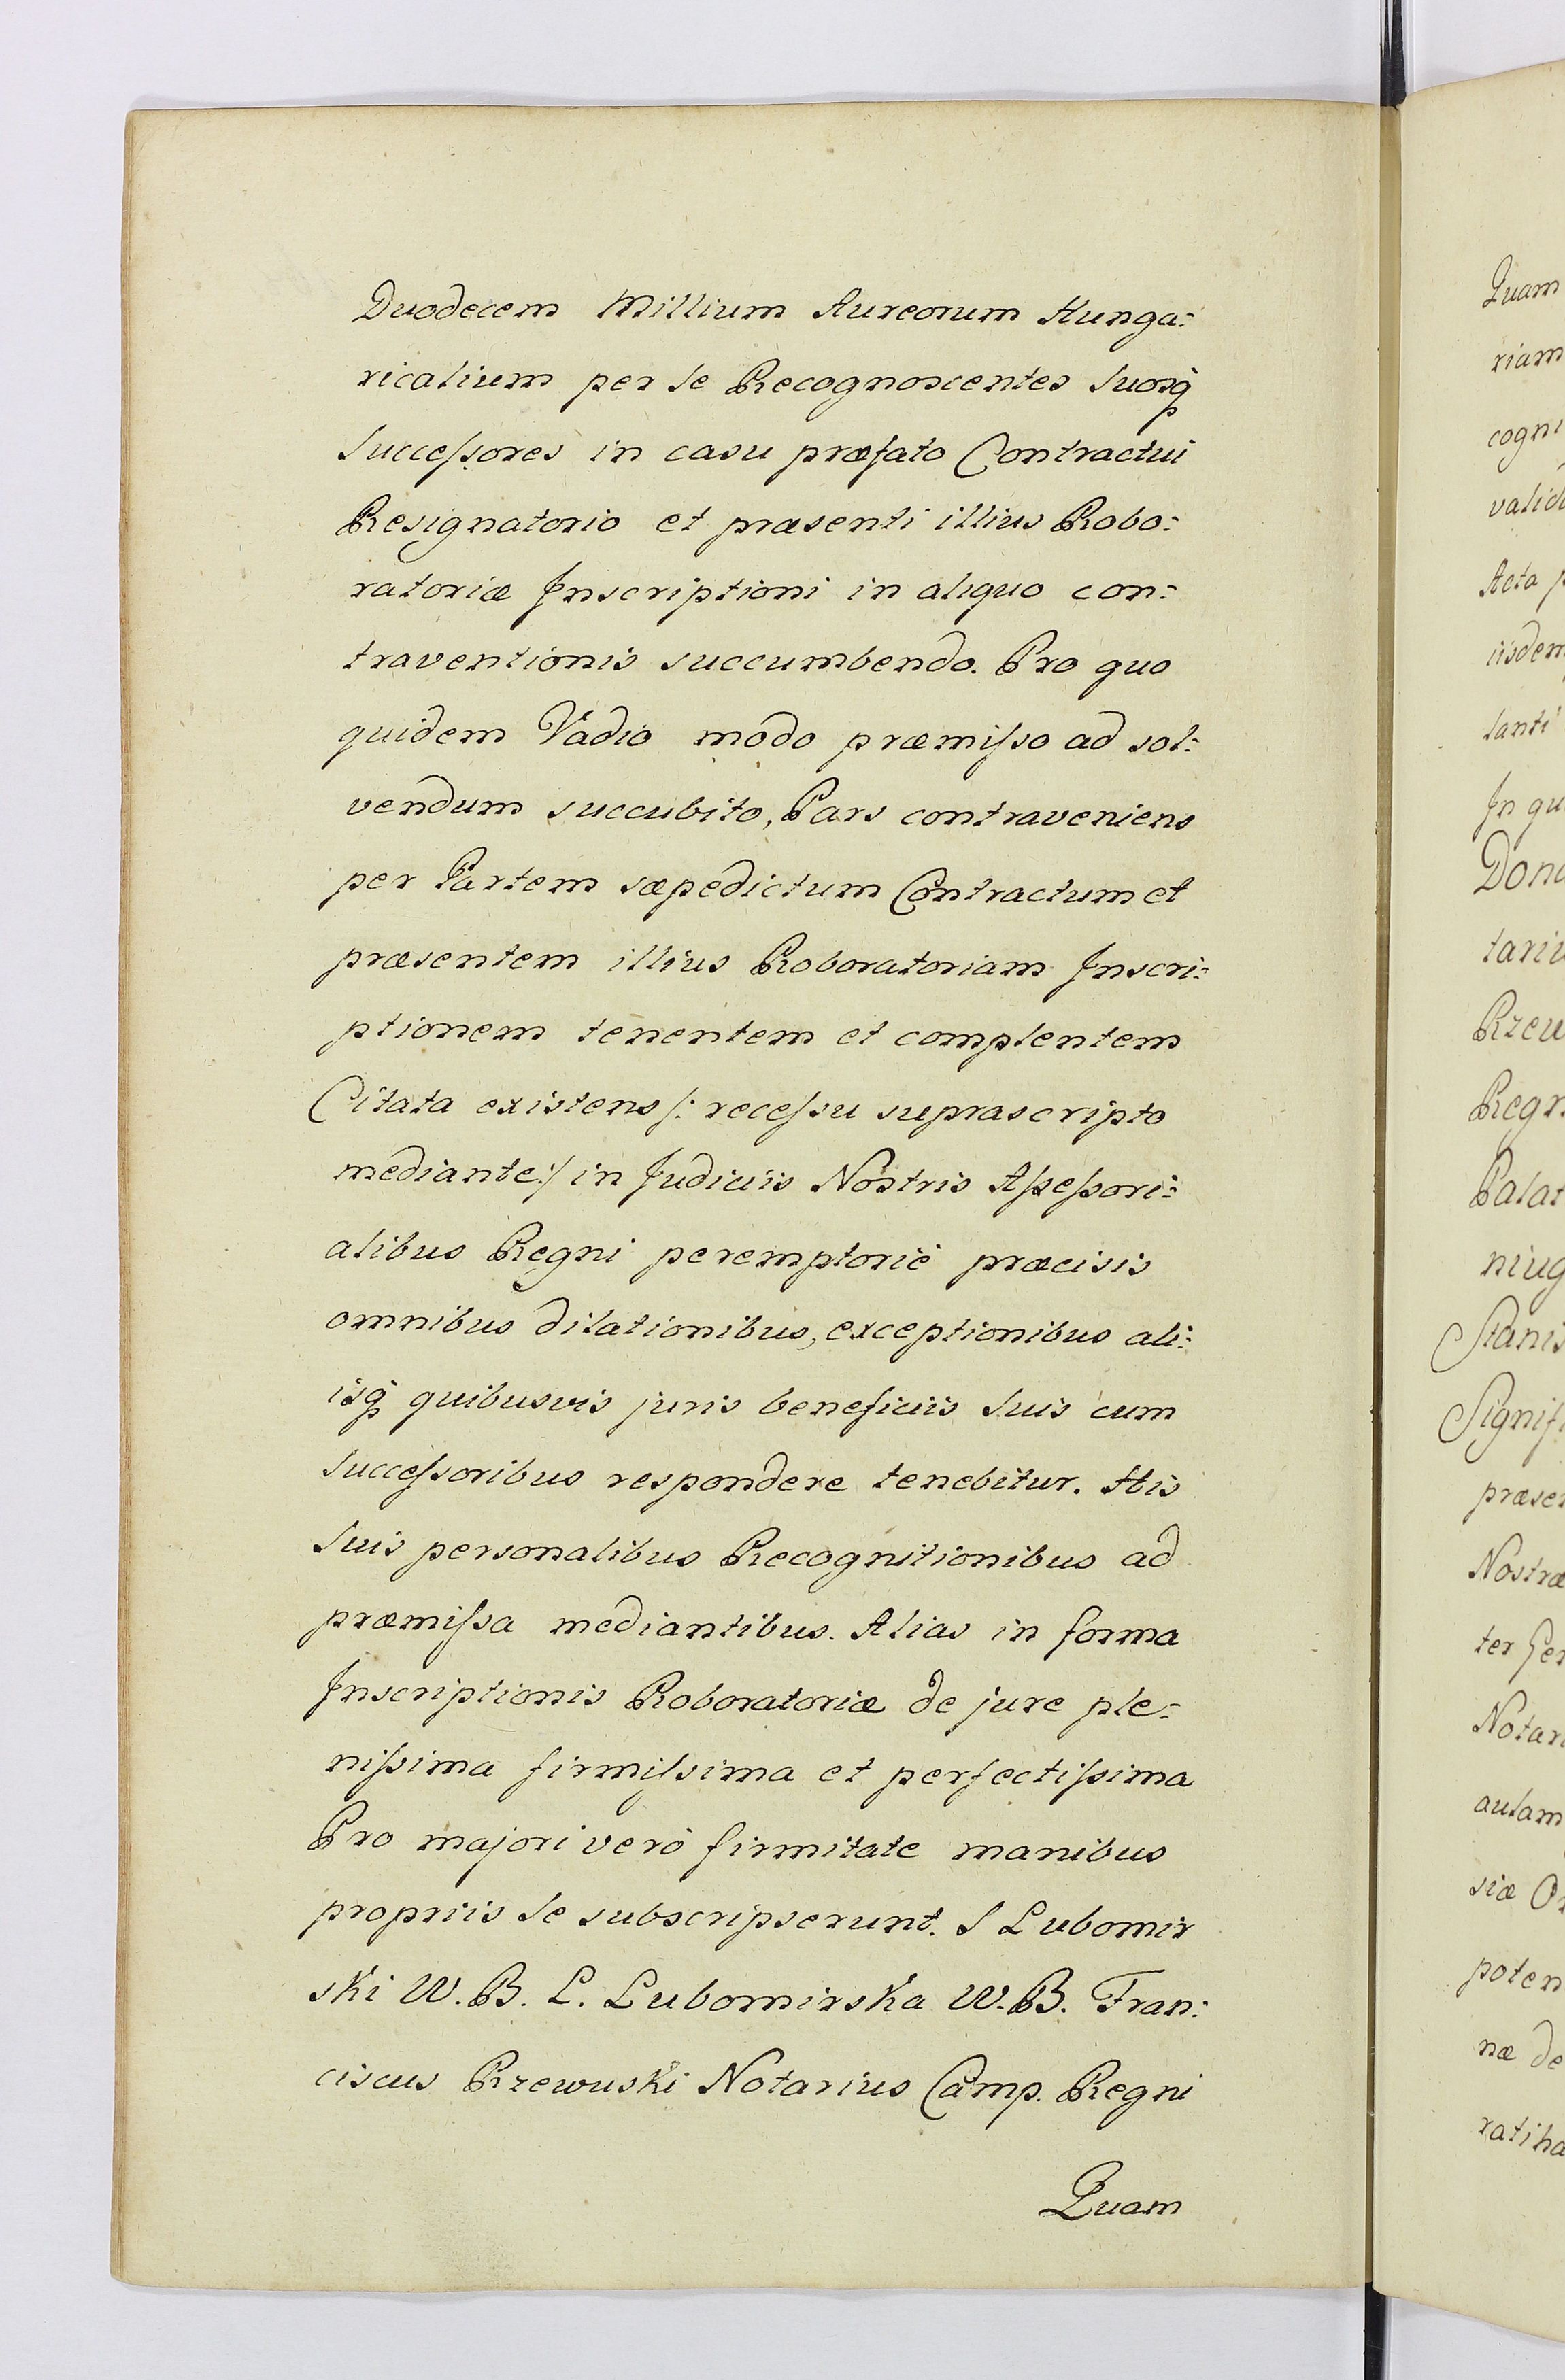 Duodecem Millium Aureorum Hunga:
ricalium per se Recognoscentes suosq̃
Successores in casu præfato Contractui
Resignatorio et præsenti illius Robo:
ratoriæ Inscriptioni in aliquo con:
traventionis succumbendo. Pro quo
quidem Vadio modo præmisso ad sol:
vendum succubito, Pars contraveniens
per Partem sæpedictum Contractum et
præsentem illius Roboratoriam Inscri:
ptionem tenentem et complentem
Citata existens /: recessu suprascripto
mediante :/ in Judiciis Nostris Assessori:
alibus Regni peremptoriè præcisis
omnibus dilationibus, exceptionibus ali:
isq̃ quibusvis juris beneficiis Suis cum
Successoribus respondere tenebitur. His
Suis personalibus Recognitionibus ad
præmissa mediantibus. Alias in forma
Inscriptionis Roboratoriæ de jure ple:
nissima firmissima et perfectissima
Pro majori verò firmitate manibus
propriis se subscripserunt. S Lubomir
ski W. B. L. Lubomirska W. B. Fran:
ciscus Rzewuski Notarius Camp. Regni
Quam
Quam
riam
cogni
valid
Acta
iisdem
lanti
In qu
Dona
tariu
Rzeu
Regn
Palat
niug
Stanis
Signifi
præse
Nostræ
ter Ger
Notari
aulam
siæ
poten
næ de
ratiha